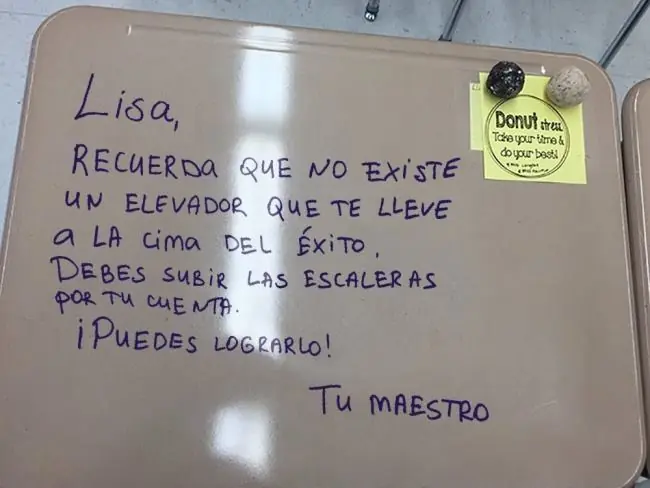 Lisa,
RECUERDA QUE NO EXISTE
UN ELEVADOR QUE TE LLEVE
a LA cima DEL ÉXITO,
DEBES SUBIR LAS ESCALERAS
POR TU CUENTA.
¡PUEDES LOGRARLO!
TU MAESTRO
Donut stress
Take your time &
do your best!